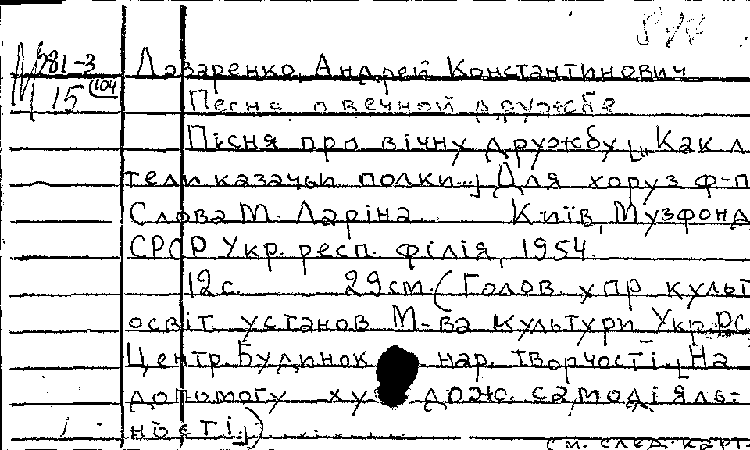 М 381-3 Лазаренко, Андрей Константинович
15 (104) Песня о вечной дружбе
Пісня про вічну дружбу [„Как ле
тели казачьи полки...] Для хору з ф-п
Слова М. Ларіна. Київ, Музфонд
СРСР Укр. респ. філія, 1954.
12 с. 29 см. (Голов. упр. культ
освіт. установ М-ва культури Укр РС
Центр. Будинок нар. творчості. „На
допомогу худож. самодіяль-
ності„)
см. след. карт.